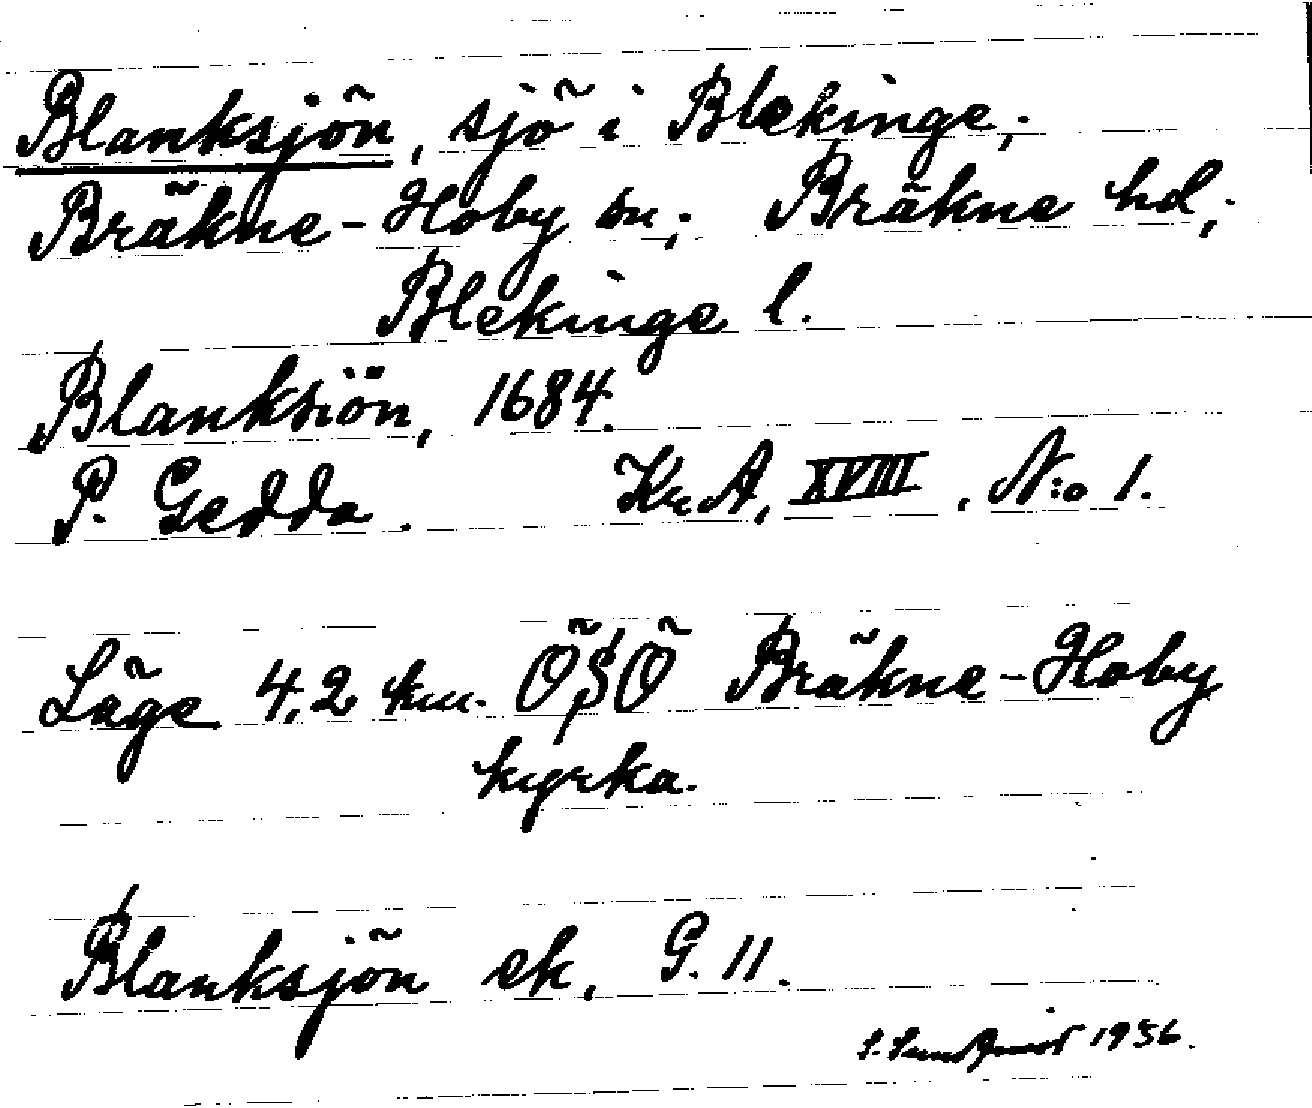 Blanksjön, sjö i Blekinge,
Bräkne-Hoby sn, Bräkne hd,
Blekinge l.
Blanksiön, 1684.
P. Gedda. Kr. A, XVIII, N:o 1.
Läge 4,2 km. ÖSÖ Bräkne-Hoby
kyrka.
Blanksjön ek. G. 11.
1956.